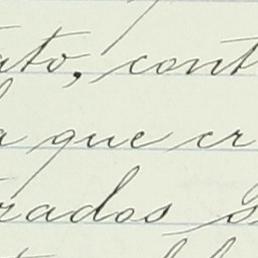 ato, cont
a que cr
rados s